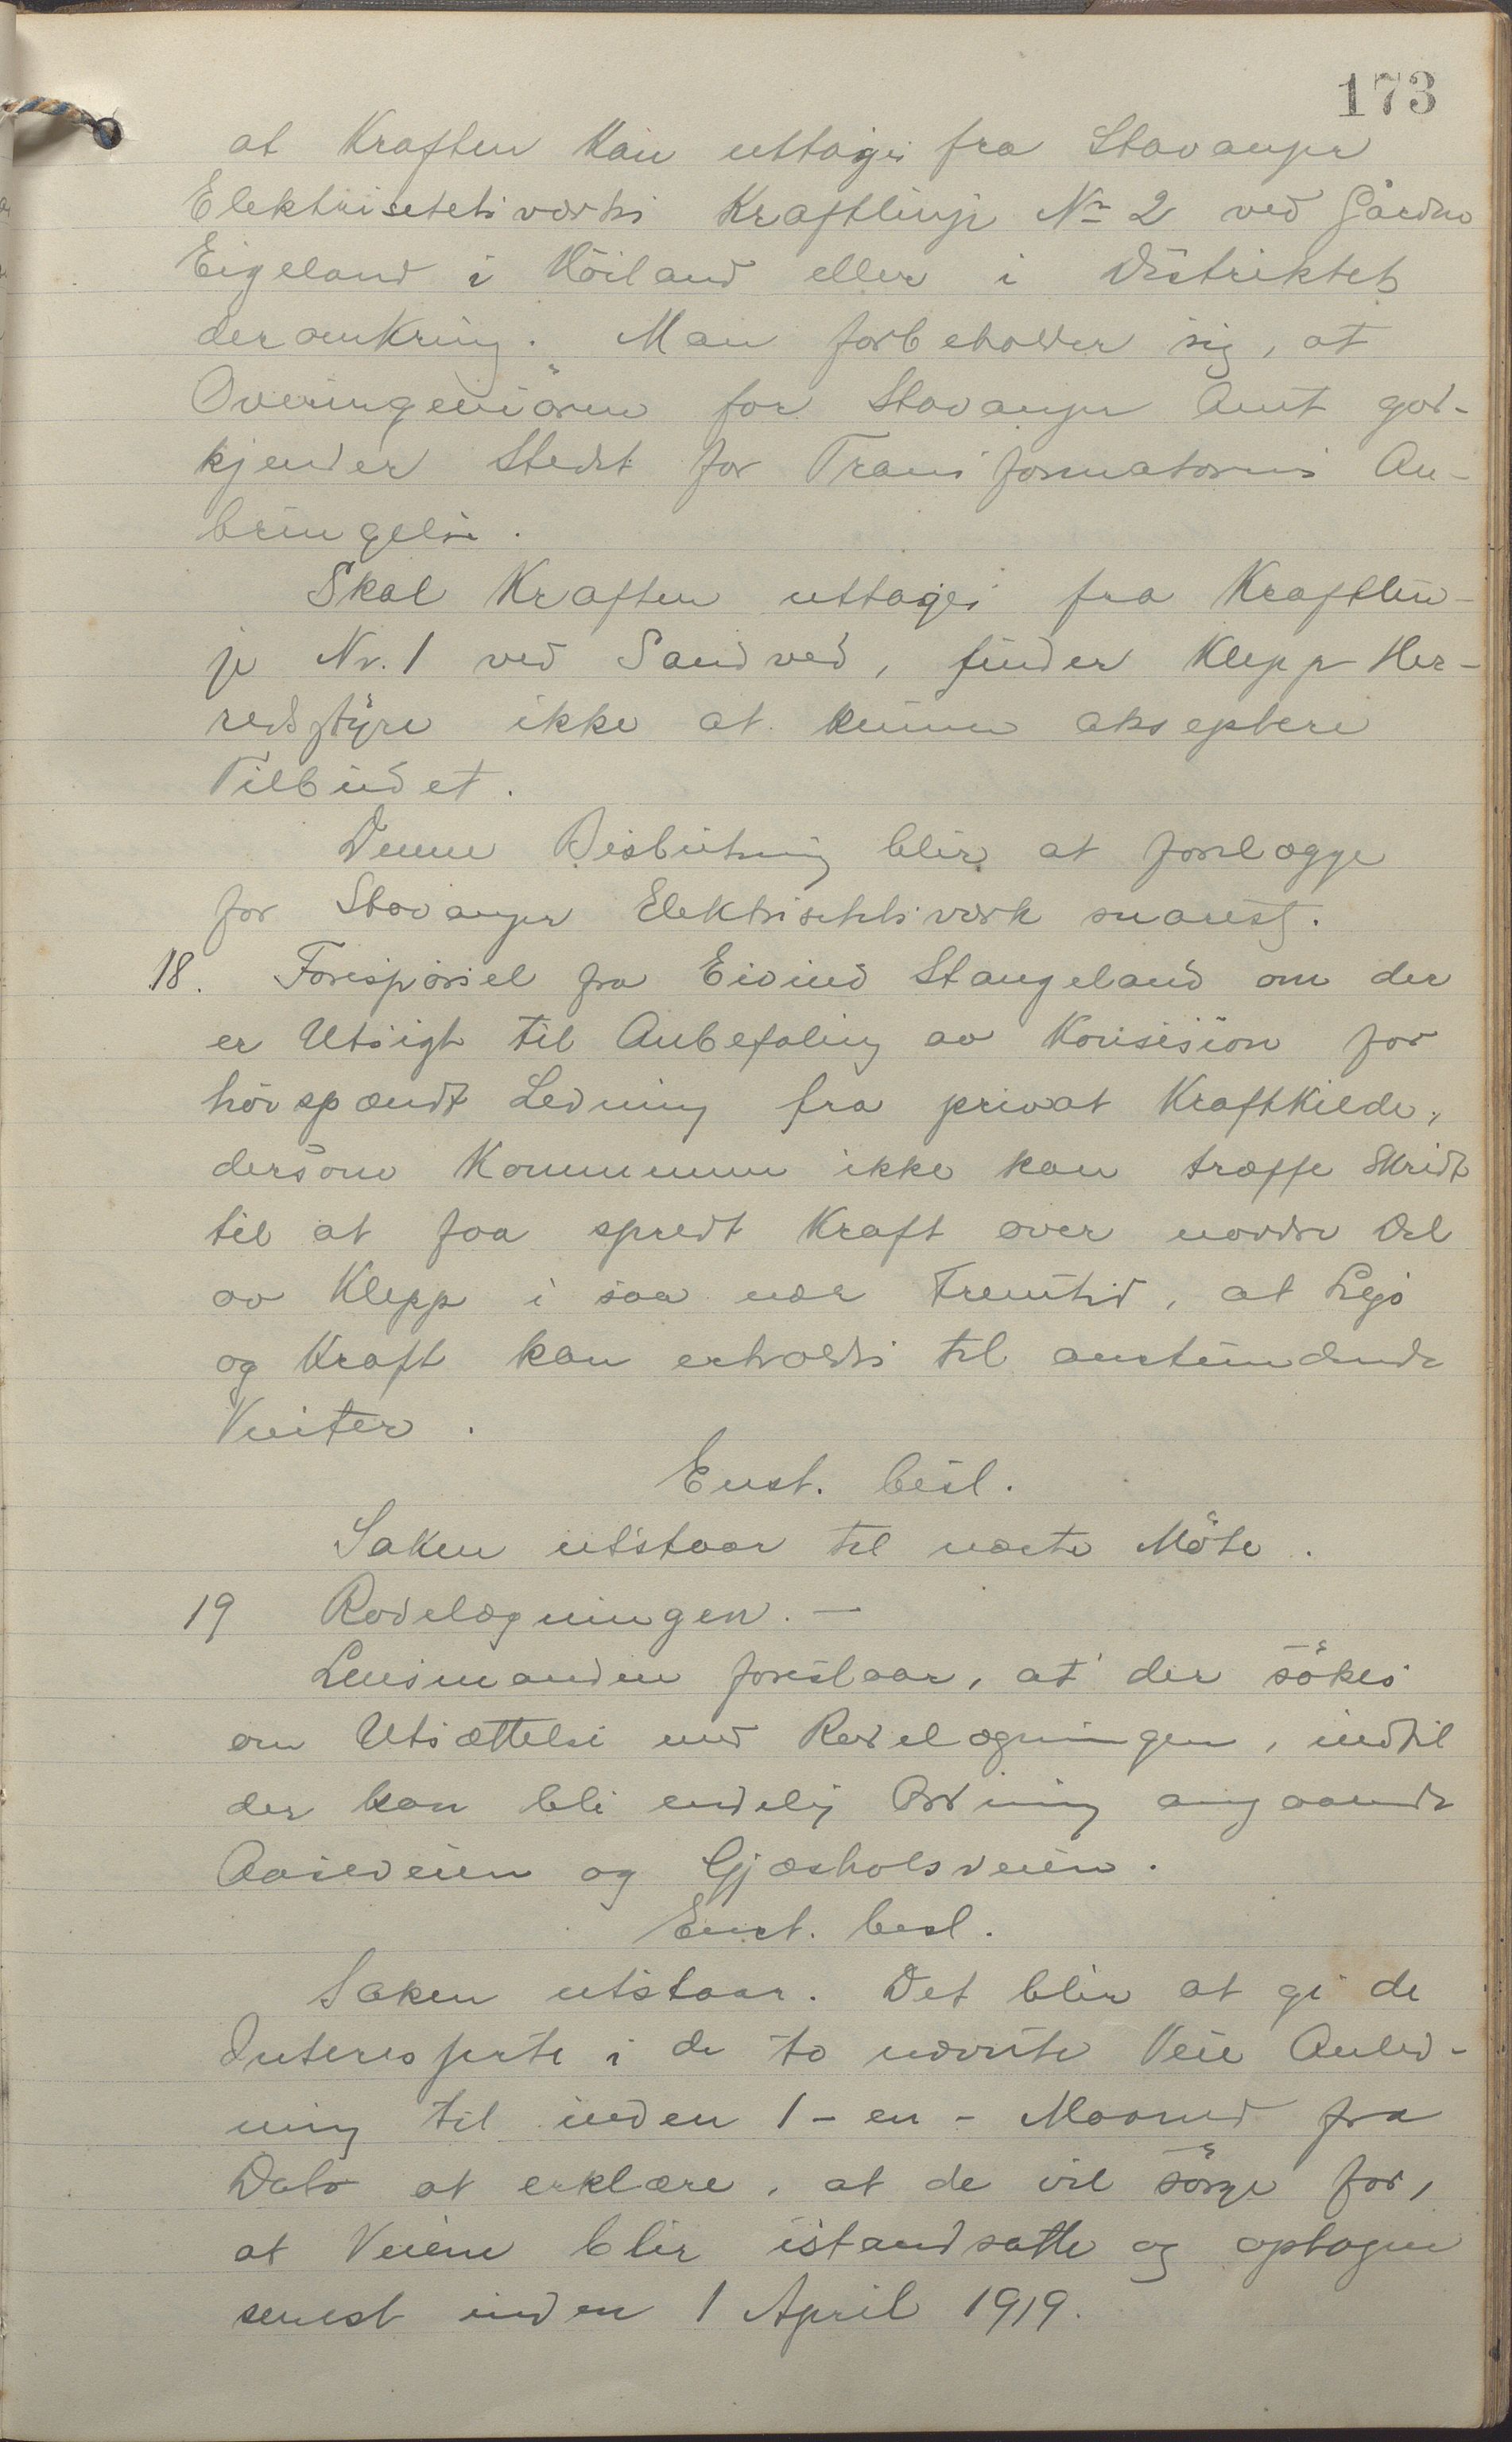 173
at Kraften kan uttages fra Stavanger
Elektrisetetsværks Kraftlinje Nr 2 ved Gården
Eigeland i Höiland eller i Distriktet
deromkring. Man forbeholder sig, at
Overingeniören for Stavanger Amt god-
kjender Stedet for Transformatorens An-
bringelse.
Skal Kraften uttages fra Kraftlin-
je Nr. 1 ved Sandved, finder Klepp Her-
redsstyre ikke at kunne akseptere
Tilbudet.
Denne Beslutning blir at forelægge
for Stavanger Elektrisitetsverk snarest.
18. Forespörsel fra Eivind Stangeland om der
er Utsigt til Anbefaling av Konsesion for
höispændt Ledning fra privat Kraftkilde,
dersom Kommunen ikke kan træffe Skridt
til at faa spredt Kraft over nordre Del
av Klepp i saa nær Fremtid, at Lys
og Kraft kan erholdes til anstundende
Vinter.
Enst. besl.
Saken utstaar til næste Möte.
19 Rodelægningen. —
Lensmanden foreslaar, at der sökes
om Utsættelse med Rodelægningen, indtil
der kan bli endelig Ordning angaaende
Aaseveien og Gjæsholsveien.
Enst. besl.
Saken utstaar. Det blir at gi de
Interesserte i de to nævnte Veie Anled-
ning til inden 1 - en - Maaned fra
Dato at erklære, at de vil sörge for,
at Veiene blir istandsatte og optagne
senest inden 1 April 1919.